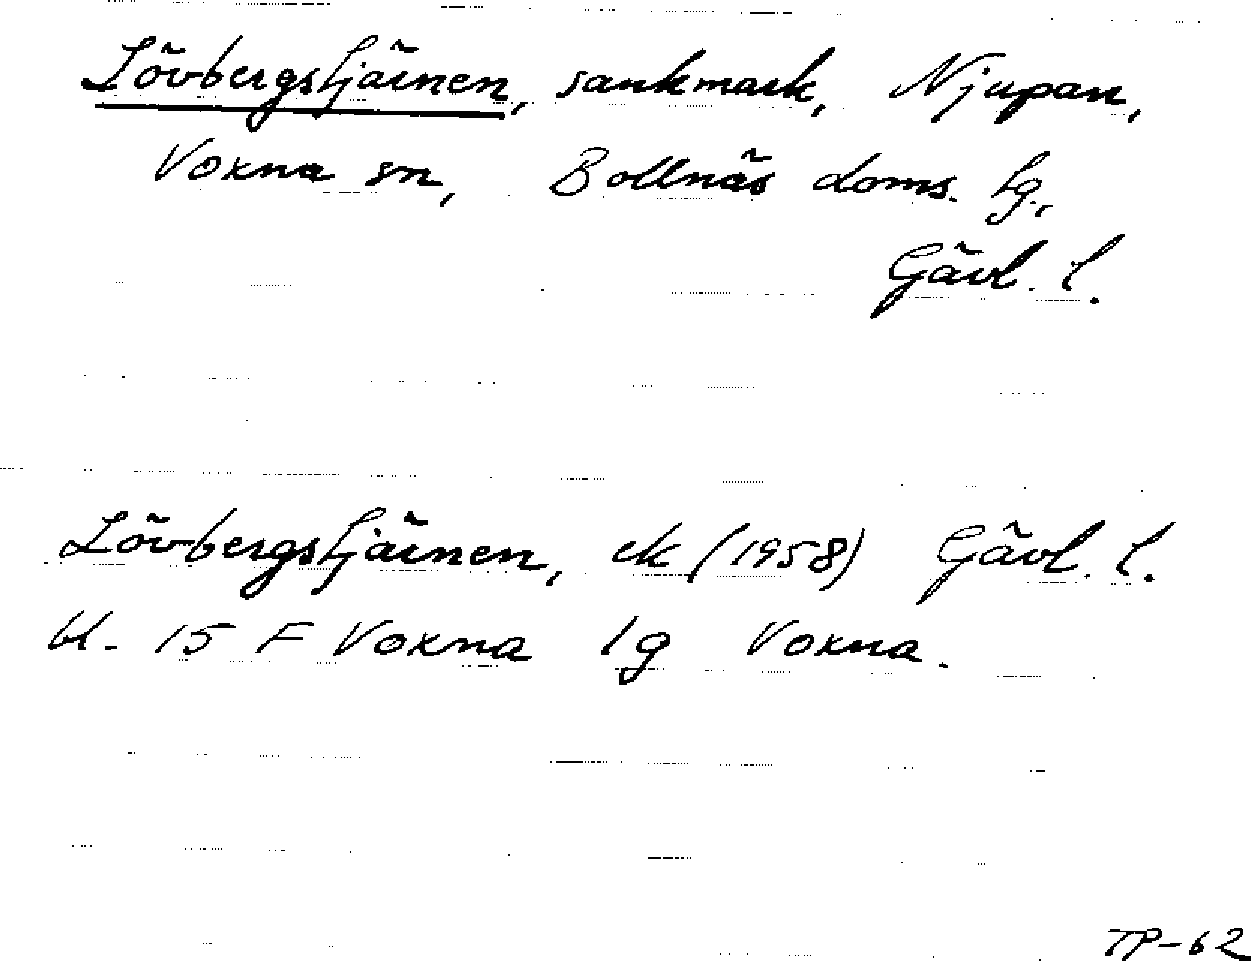 Lövbergstjärnen, sankmark, Njupan,
Voxna sn, Bollnäs doms. tg,
Gävl. l.
Lövbergstjärnen, ek (1958) Gävl. l.
U. 15 F Voxna 1g Voxna.
TP-62